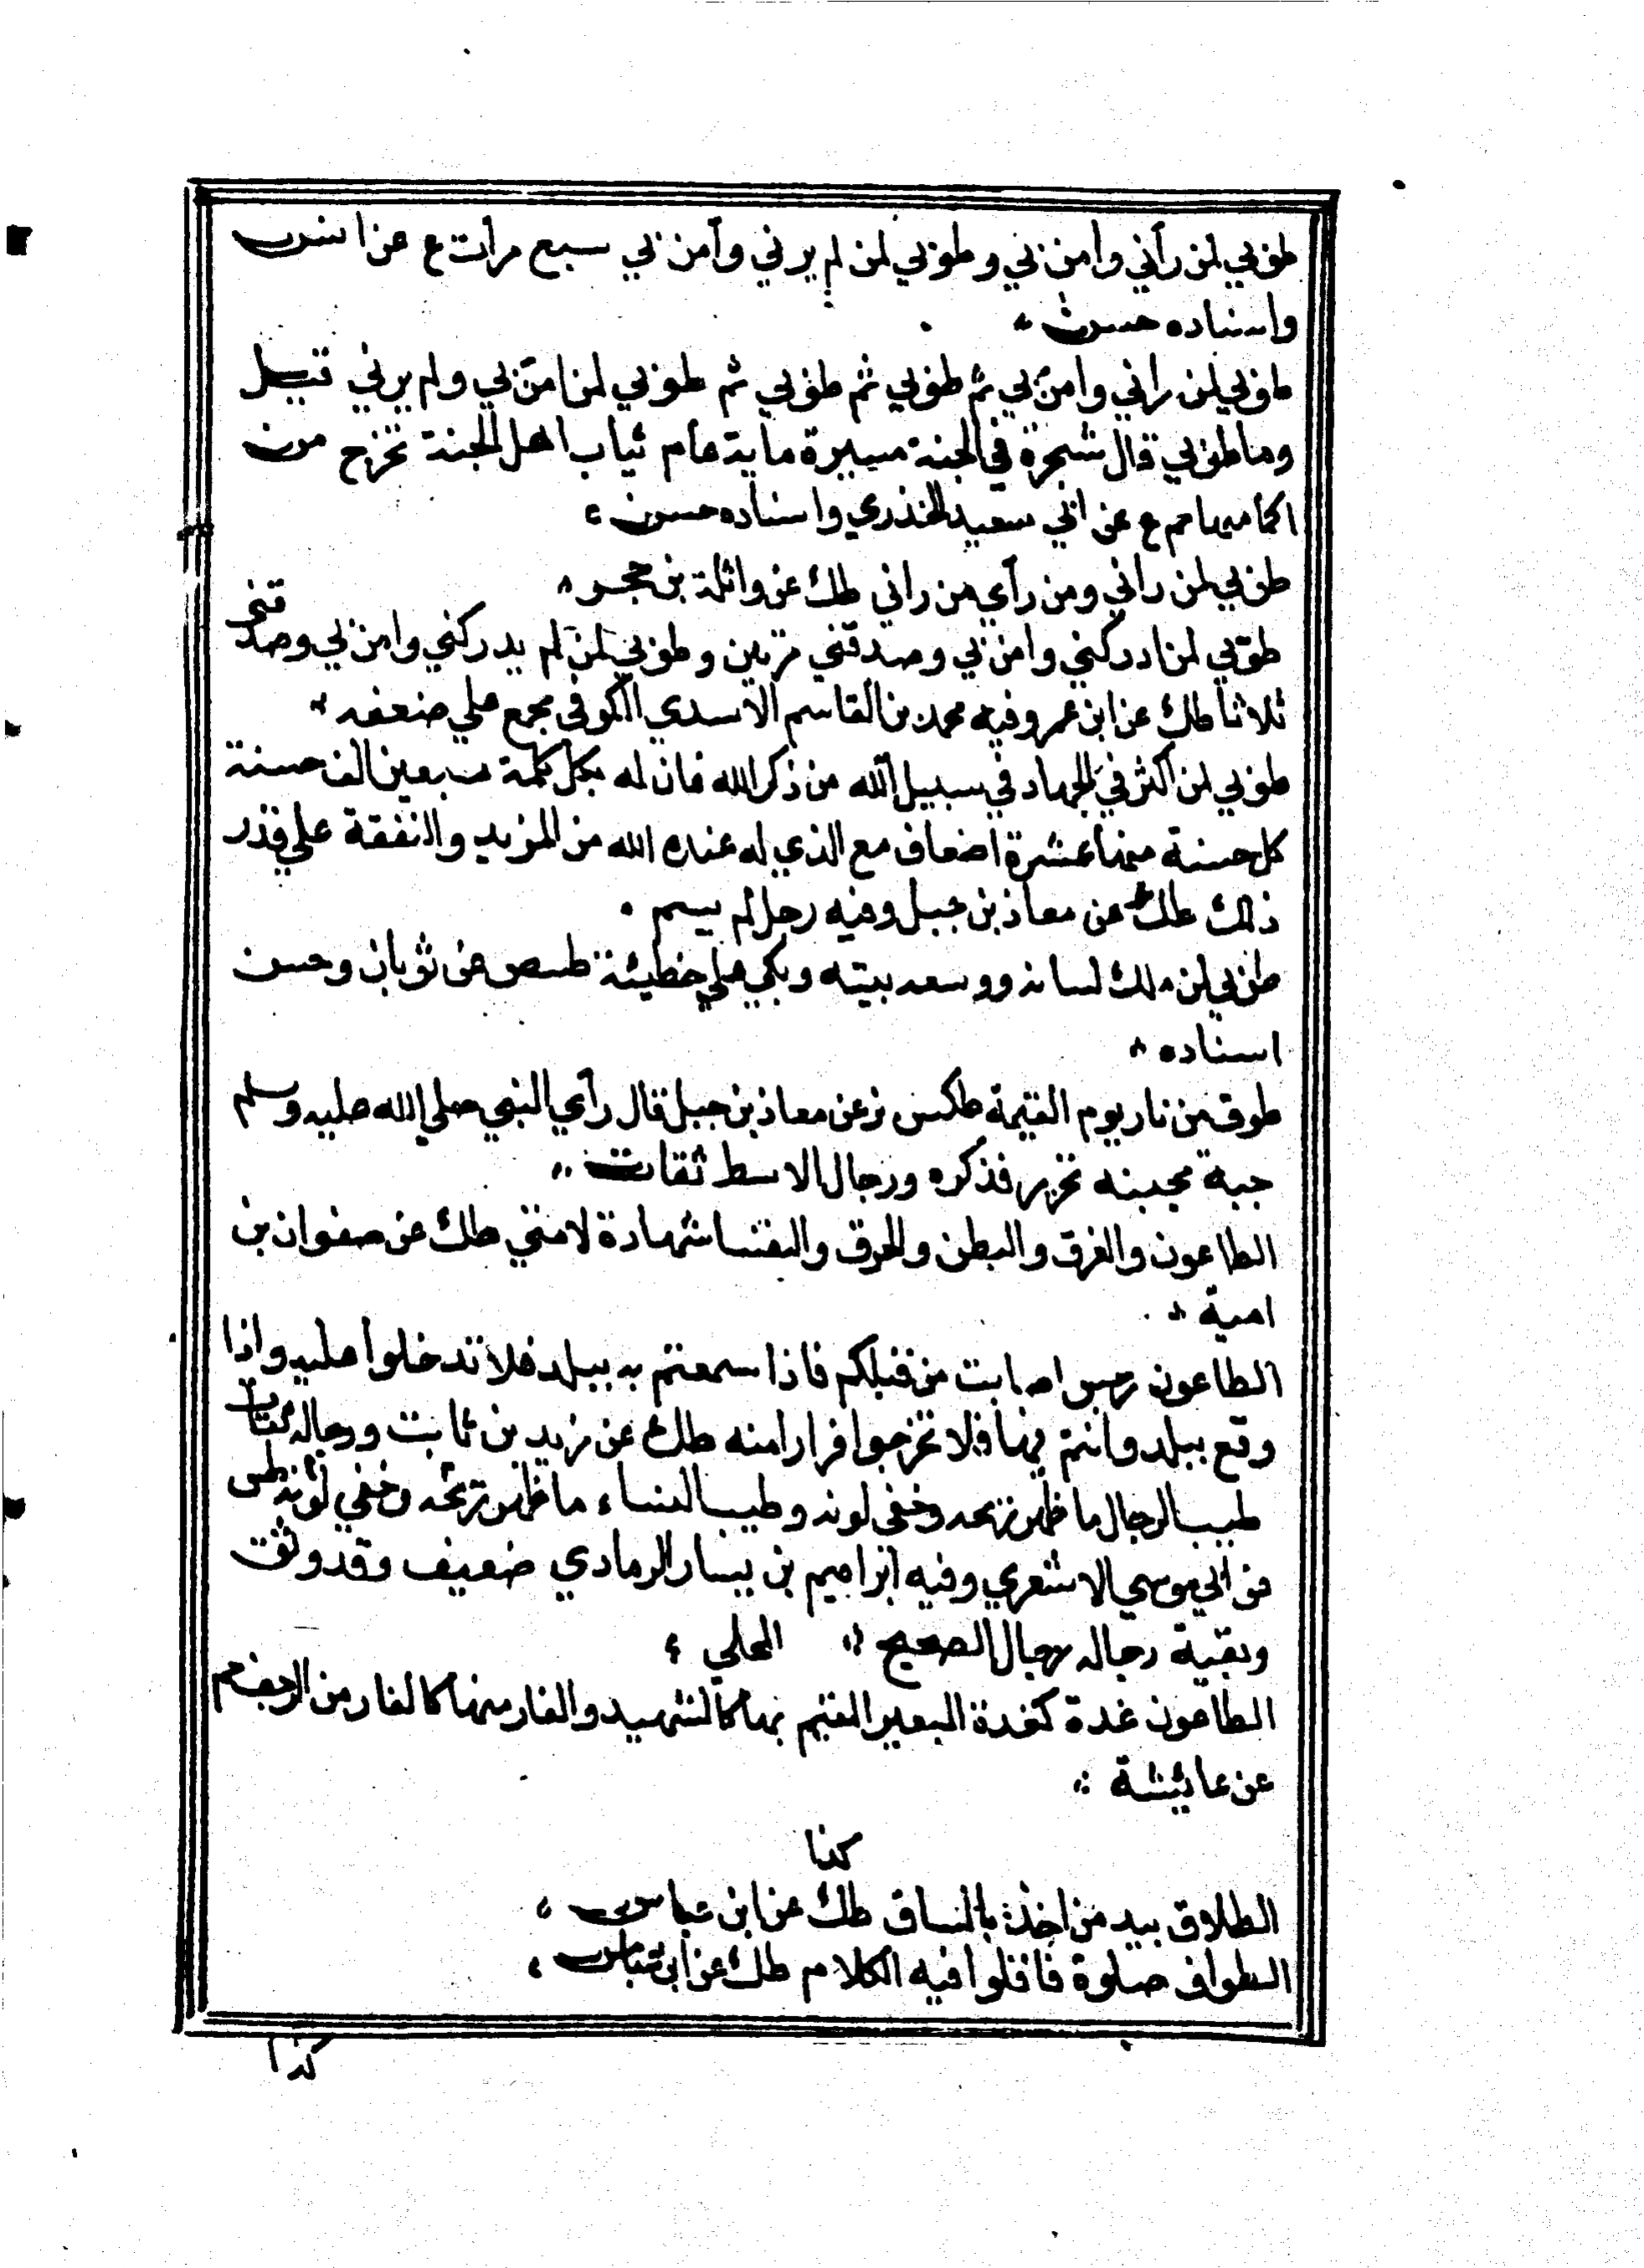 طوبي لمن رآني وامن بي وطوبي لمن لم يرني وآمن بي سبع مرات ع عن انس
واسناده حسن
طوبي لمن راني وامن بي ثم طوبي ثم طوبي ثم طوبي لمن امن بي ولم يرني قيل
وما طوبي قال شجرة في الجنة مسيرة ماية عام ثياب اهل الجنة تخرج من
اكمامها حم ع عن ابي سعيد الخذري واسناده حسن
طوبي لمن راني ومن رآي من راني طك عن وائلة بن حجر
طوبي لمن ادركني وامن بي وصدقني مرتين وطوبي لمن لم يدركني وامن بي وصدقني
ثلاثا طك عن ابن عمر وفيه محمد بن القاسم الاسدي الكوفي مجمع علي ضعفه
طوبي لمن اكثر في الجهاد في سبيل الله من ذكر الله فان له بكل كلمة سبعين الف حسنة
كل حسنة منها عشرة اضعاف مع الذي له عند الله من المزيد والنفقة علي قدر
ذلك طك عن معاذ بن جبل وفيه رجل لم يسم
طوبي لمن ملك لسانه ووسعه بيته وبكي علي خطيئة طسص عن ثوبان وحسن
اسناده
طوق من نار يوم القيمة طكس ز عن معاذ بن جبل قال رآي النبي صلي الله عليه وسلم
جبة مجيبة تحرير فذكره ورجال الاسط ثقات
الطاعون والغرق والبطن والحرق والنفسا شهادة لامتي طك عن صفوان بن
امية
الطاعون رجس اصابت من قبلكم فاذا سمعتم به ببلد فلا تدخلوا عليه واذا
وقع ببلد وانتم بها فلا تخرجوا فرارا منه طك عن زيد بن ثابت ورجاله ثقات
طيب الرجال ما ظهر ريحه وخفي لونه وطيب النساء ما ظهر ريحه وخفي لونه طس
عن ابي موسي الاشعري وفيه ابراهيم بن يسار الرمادي ضعيف وقد وثق
وبقية رجاله رجال الصحيح المحلي
الطاعون غدة كغدة البعير المقيم بها كالشهيد والفار منها كالفار من الزحف حم
عن عايشة
كذا
الطلاق بيد من اخذ بالساق طك عن ابن عباس
الطواف صلوة فاقلوا فيه الكلام طك عن ابن عباس
كذا